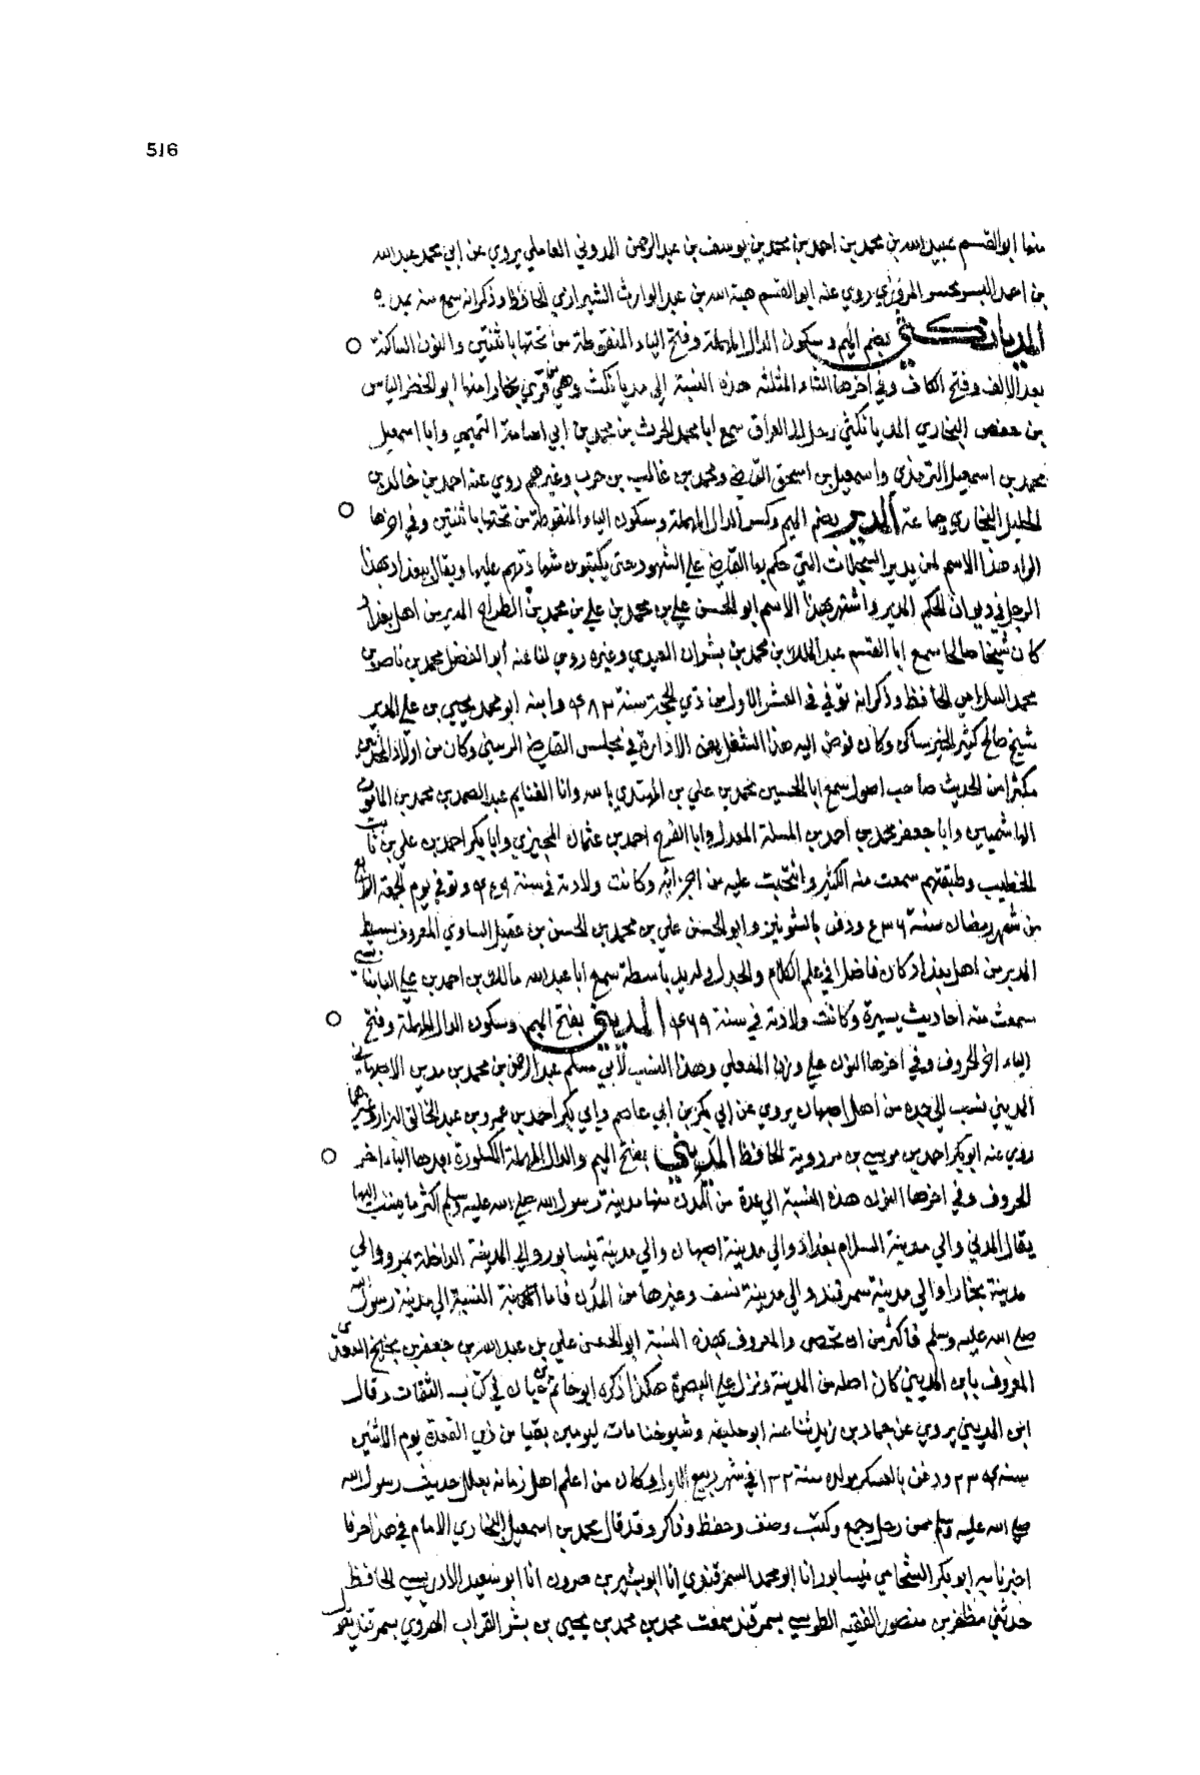 516
منها ابو القسم عبيد الله بن محمد بن احمد بن محمد بن يوسف بن عبد الرحمن المدوني العاملي يروي عن ابي محمد عبد الله
بن احمد المروزي روي عنه ابو القسم هبة الله بن عبد الوارث الشيرازي الحافظ وذكر انه سمع منه
المديانكثي بضم الميم وسكون الدال المهملة وفتح الياء المنقوطة من تحتها باثنتين والنون الساكنة
بعد الالف وفتح الكاف وفي اخرها الثاء المثلثه هذه النسبة الي مديانكث وهي من قري بخارا منها ابو الخضر الياس
بن حفص البخاري المديانكثي رحل الي العراق سمع ابا محمد الحرث بن محمد بن ابي اسامة التميمي وابا اسمعيل
محمد بن اسمعيل الترمذي واسمعيل بن اسحق القاضي ومحمد بن غالب بن حرب وغيرهم روي عنه احمد بن خالد بن
الخليل البخاري وجماعة المدير بضم الميم وكسر الدال المهملة وسكون الياء المنقوطة من تحتها باثنتين وفي اخرها
الراء هذا الاسم لمن يدير السجلات التي حكم بها القاضي علي الشهود حتي يكتبون شهادتهم عليها ويقال ببغداد بهذا
الرجل في ديوان الحكم المدير واشتهر بهذا الاسم ابو الحسن علي بن محمد بن علي بن محمد بن الطراح المدير من اهل بغداد
كان شيخا صالحا سمع ابا القسم عبد الملك بن محمد بن بشران العبدي وغيره روي لنا عنه ابو الفضل محمد بن ناصر بن
محمد السلامي الحافظ وذكر انه توفي في العشر الاول من ذي الحجة سنة ٤٨٣ وابنه ابو محمد يحيي بن علي المدير
شيخ صالح كثير الخير ساكن وكان فوض اليه هذا الشغل يعني الادارة في مجلس القاضي الزينبي وكان من اولاد المحدثين
مكثرا من الحديث صاحب اصول سمع ابا الحسين محمد بن علي بن المهتدي بالله وابا الغنايم عبد الصمد بن محمد بن المامون
الهاشميين وابا جعفر محمد بن احمد بن المسلمة المعدل وابا الفرج احمد بن عثمان المخبزي وابا بكر احمد بن علي بن ثابت
الخطيب وطبقتهم سمعت منه الكثير وانتخبت عليه من اجزائه وكانت ولادته في سنة ٤٥٩ وتوفي يوم الجمعة الرابع
من شهر رمضان سنة ٥٣٦ ودفن بالشونيز وابو الحسن علي بن محمد بن الحسن بن عقيل الساوي المعروف بسبط
المدير من اهل بغداد كان فاضلا في علم الكلام والجدل وله يد باسطة سمع ابا عبد الله مالك بن احمد بن علي البانياسي
سمعت منه احاديث يسيرة وكانت ولادته في سنة ٤٦٩ المديني بفتح الميم وسكون الدال المهملة وفتح
الياء اخر الحروف وفي اخرها النون علي وزن المفعلي وهذا النسب لابي مسلم عبد الرحمن بن محمد بن مدين الاصبهاني
المديني نسب الي جده من اهل اصبهان يروي عن ابي بكر بن ابي عاصم وابي بكر احمد بن عمرو بن عبد الخالق البزار وغيرهما
روي عنه ابو بكر احمد بن موسي بن مردوية الحافظ المديني بفتح الميم والدال المهملة المكسورة بعدها الياء اخر
الحروف وفي اخرها النون هذه النسبة الي عدة من المدن منها مدينة رسول الله صلي الله عليه وسلم اكثر ما ينسب اليها
يقال المدني والي مدينة السلام بغداد والي مدينة اصبهان والي مدينة نيسابور والي المدينة الداخلة بمرو والي
مدينة بخارا والي مدينة سمرقند والي مدينة نسف وغيرها من المدن فاما النسبة الي مدينة رسول الله
صلي الله عليه وسلم فاكثر من ان تحصي والمعروف بهذه النسبة ابو الحسن علي بن عبد الله بن جعفر بن نجيح السعدي
المعروف بابن المديني كان اصله من المدينة ونزل علي البصرة هكذا ذكره ابو حاتم بن حبان في كتاب الثقات وقال
ابن المديني يروي عن حماد بن زيد ثنا عنه ابو خليفة وشيوخنا مات ليومين بقيا من ذي القعدة يوم الاثنين
سنة ٢٣٤ ودفن بالعسكر مولده سنة ١٦٢ في شهر ربيع الاول وكان من اعلم اهل زمانه بعلل حديث رسول الله
صلي الله عليه وسلم ممن رحل وجمع وكتب وصنف وحفظ وذاكر وقد قال محمد بن اسمعيل البخاري الامام في هذا حرفا
اخبرنا به ابو بكر الشحامي بنيسابور انا ابو محمد السمرقندي انا ابو بشر بن هرون انا ابو سعيد الادريسي الحافظ
حدثني مظفر بن منصور الفقيه الطوسي بسمرقند سمعت محمد بن محمد بن يحيي بن بشر القراب الهروي بسمرقند يقول